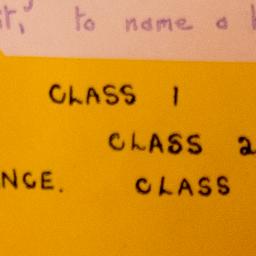 to name a
CLASS 1
CLASS 2
NCE. CLASS